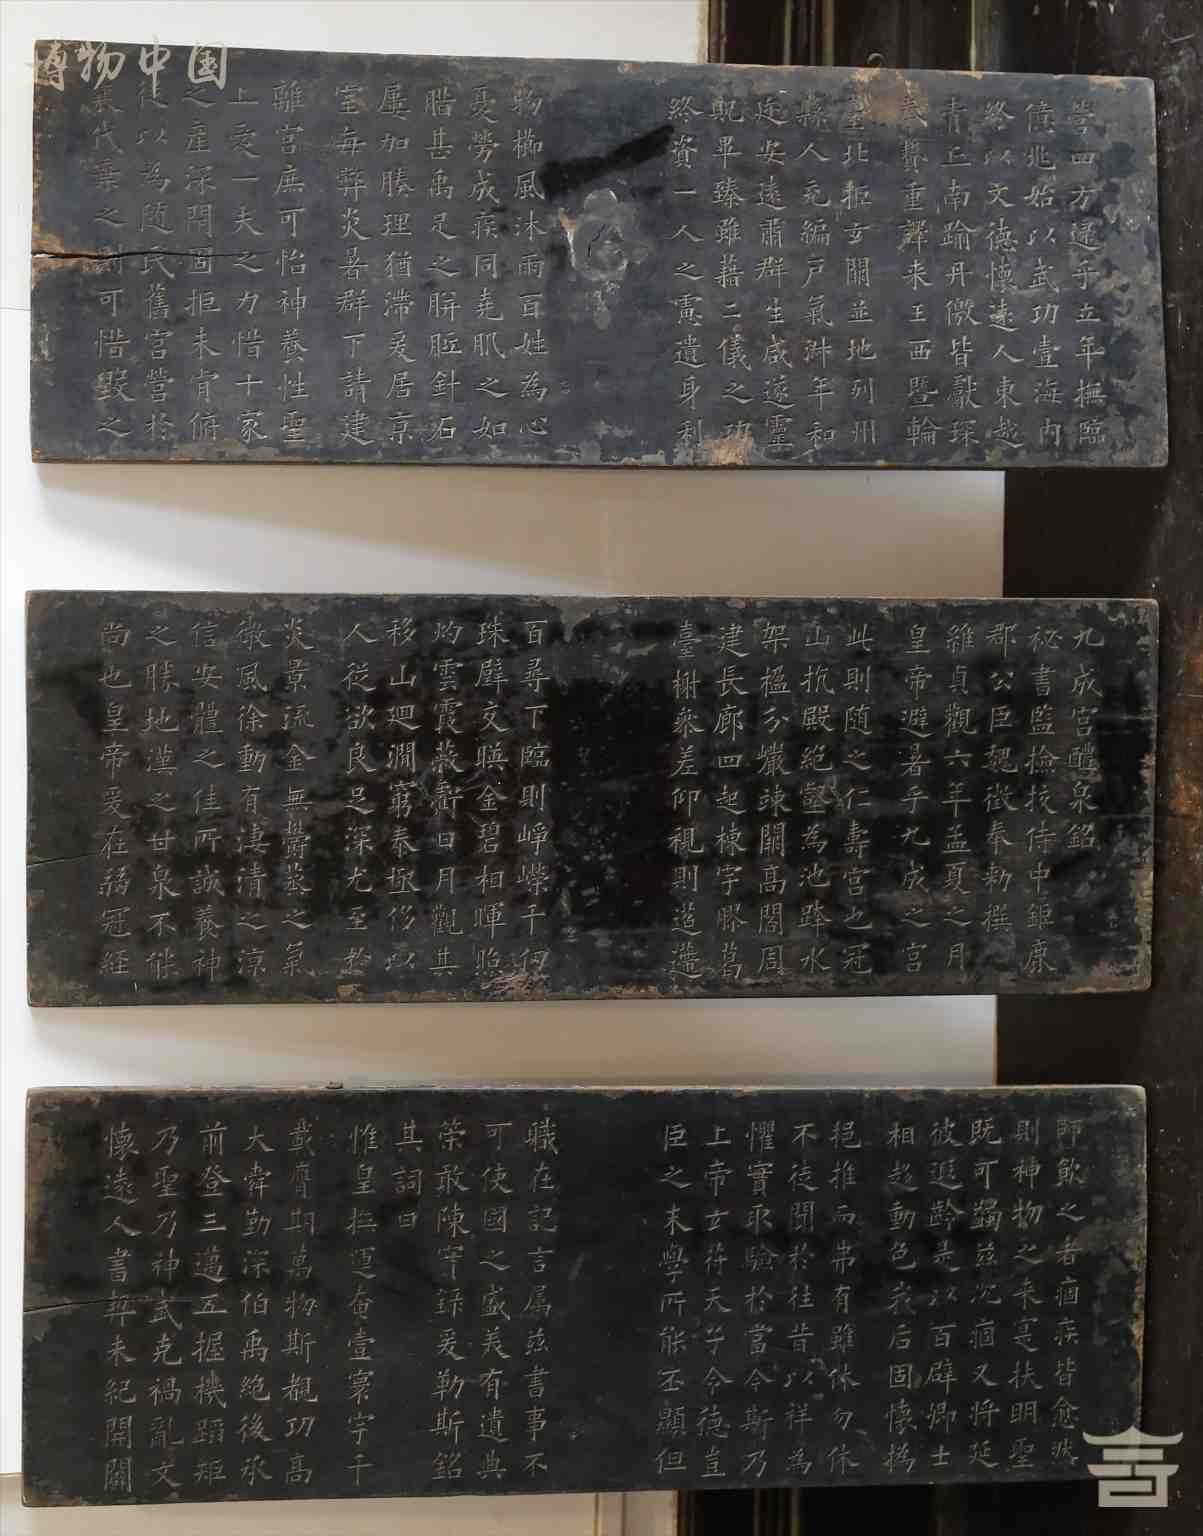 博物中国
營四方逮乎立年撫臨
億兆始以武功壹海內
終以文德懷遠人東越
青丘南踰丹徼皆獻琛
奉贄重譯來王西暨輪
臺北拒玄闕並地列州
縣人充編戶氣淑年和
迩安遠肅群生咸遂靈
貺畢臻雖藉二儀之功
終資一人之慮遺身利
物櫛風沐雨百姓為心
憂勞成疾同堯肌之如
腊甚禹足之胼胝針石
屢加腠理猶滯爰居京
室每弊炎暑群下請建
離宮庶可怡神養性聖
上愛一夫之力惜十家
之產深閉固拒未肯俯
從以為随氏舊宮營於
曩代棄之則可惜毀之
九成宮醴泉銘
祕書監撿挍侍中鉅鹿
郡公臣魏徵奉勑撰
維貞觀六年孟夏之月
皇帝避暑乎九成之宮
此則随之仁壽宮也冠
山抗殿絕壑為池跨水
架楹分巖竦闕高閣周
建長廊四起棟宇膠葛
臺榭參差仰視則迢遰
百尋下臨則崢嶸千仞
珠璧交暎金碧相暉照
灼雲霞蔽虧日月觀其
移山迴澗窮泰極侈以
人從欲良足深尤至於
炎景流金無鬱蒸之氣
微風徐動有淒清之涼
信安體之佳所誠養神
之勝地漢之甘泉不能
尚也皇帝爰在弱冠經
師飲之者痼疾皆愈然
則神物之來寔扶明聖
既可蠲茲沉痼又將延
彼遐齡是以百辟卿士
相趍動色我后固懷撝
挹推而弗有雖休勿休
不徒聞於往昔以祥為
懼實取驗於當今斯乃
上帝玄符天子令德豈
臣之末學所能丕顯但
職在記言屬茲書事不
可使國之盛美有遺典
策敢陳實錄爰勒斯銘
其詞曰
惟皇撫運奄壹寰宇千
載膺期萬物斯覩功高
大舜勤深伯禹絕後承
前登三邁五握機蹈矩
乃聖乃神武克禍亂文
懷遠人書契未紀開闢